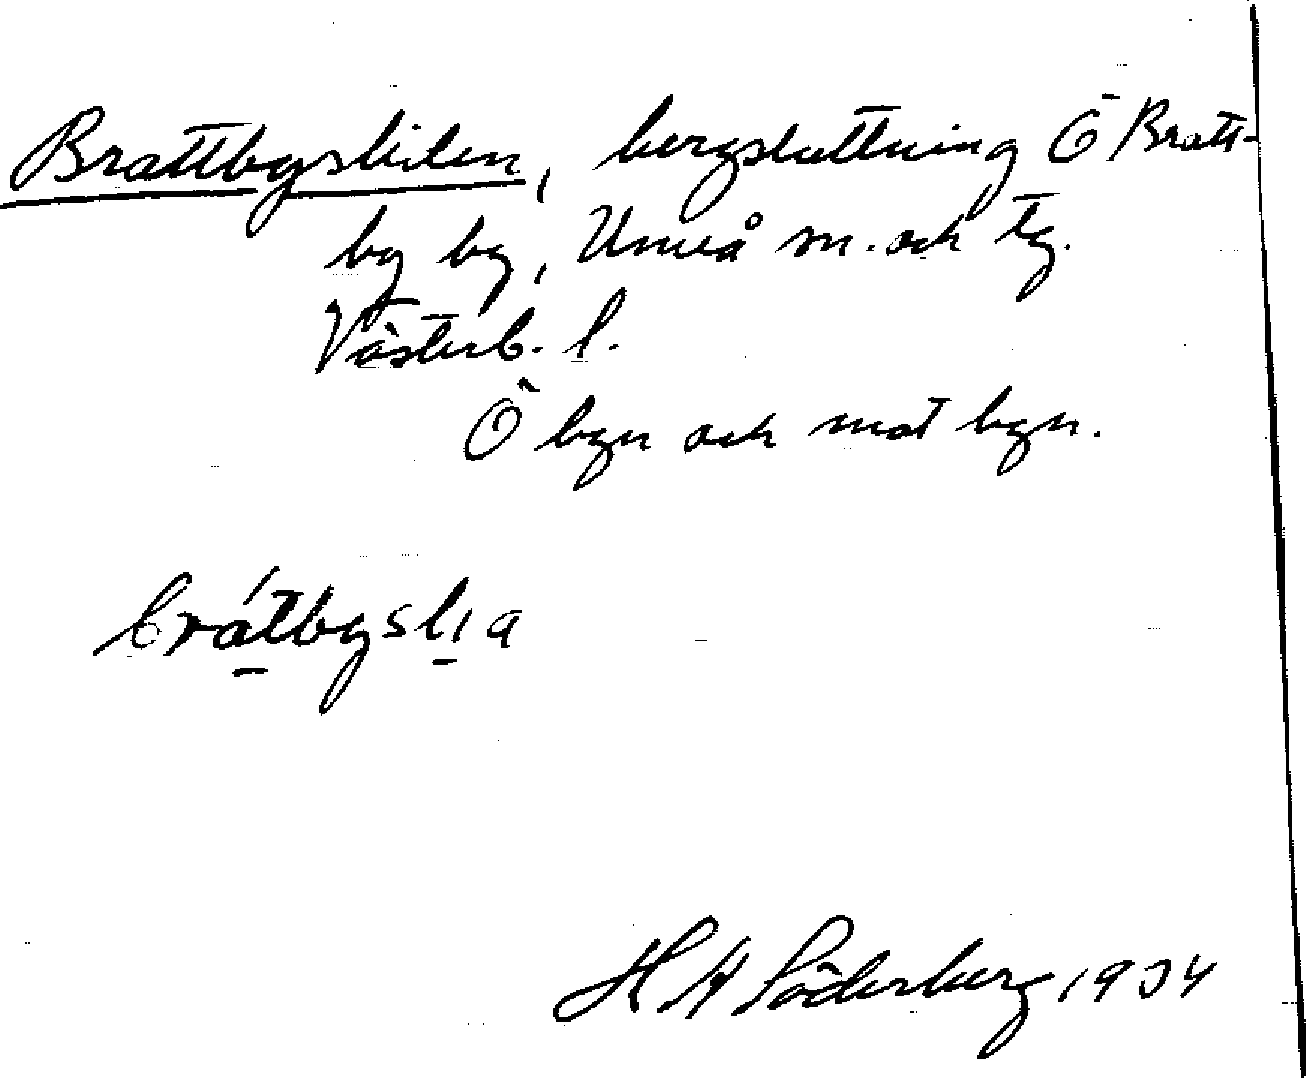 Brattbysliden, bergsluttning Ö Bratt-
by by, Umeå sn. och tg.
Västerb. l.
Ö byn och mot byn.
brátbyslıa
H A Söderberg 1934